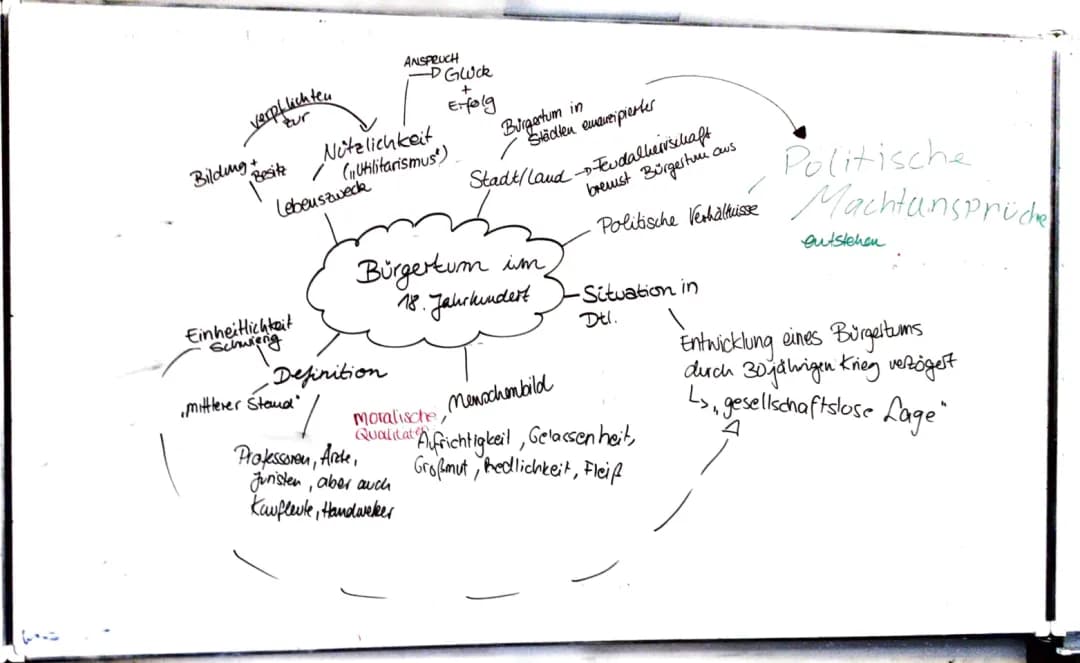 ANSPRUCH
Glück
+
Erfolg
verpflichten
zur
Bildung +
Besitz
Nützlichkeit
("Utilitarismus")
Lebenszweck
Bürgertum in
Städten emanzipierter
Stadt/Land → Feudalherrschaft
bremst Bürgertum aus
Politische Verhältnisse
Politische
Machtansprüche
entstehen
Bürgertum im
18. Jahrhundert
Situation in
Dtl.
Entwicklung eines Bürgertums
durch 30jährigen Krieg verzögert
↳ "gesellschaftslose Lage"
Einheitlichkeit
schwierig
Definition
"mittlerer Stand"
Professoren, Ärzte,
Juristen, aber auch
Kaufleute, Handwerker
Menschenbild
moralische
Qualitäten
Aufrichtigkeit, Gelassenheit,
Großmut, Redlichkeit, Fleiß